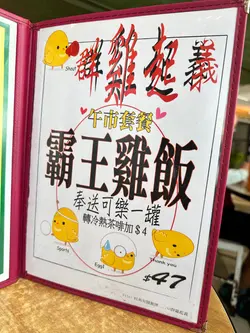 群雞起義
Shoot
午市套餐
霸王雞飯
奉送可樂一罐
轉冷熱茶啡加$4
Sports
Egg!
Thank you
$47